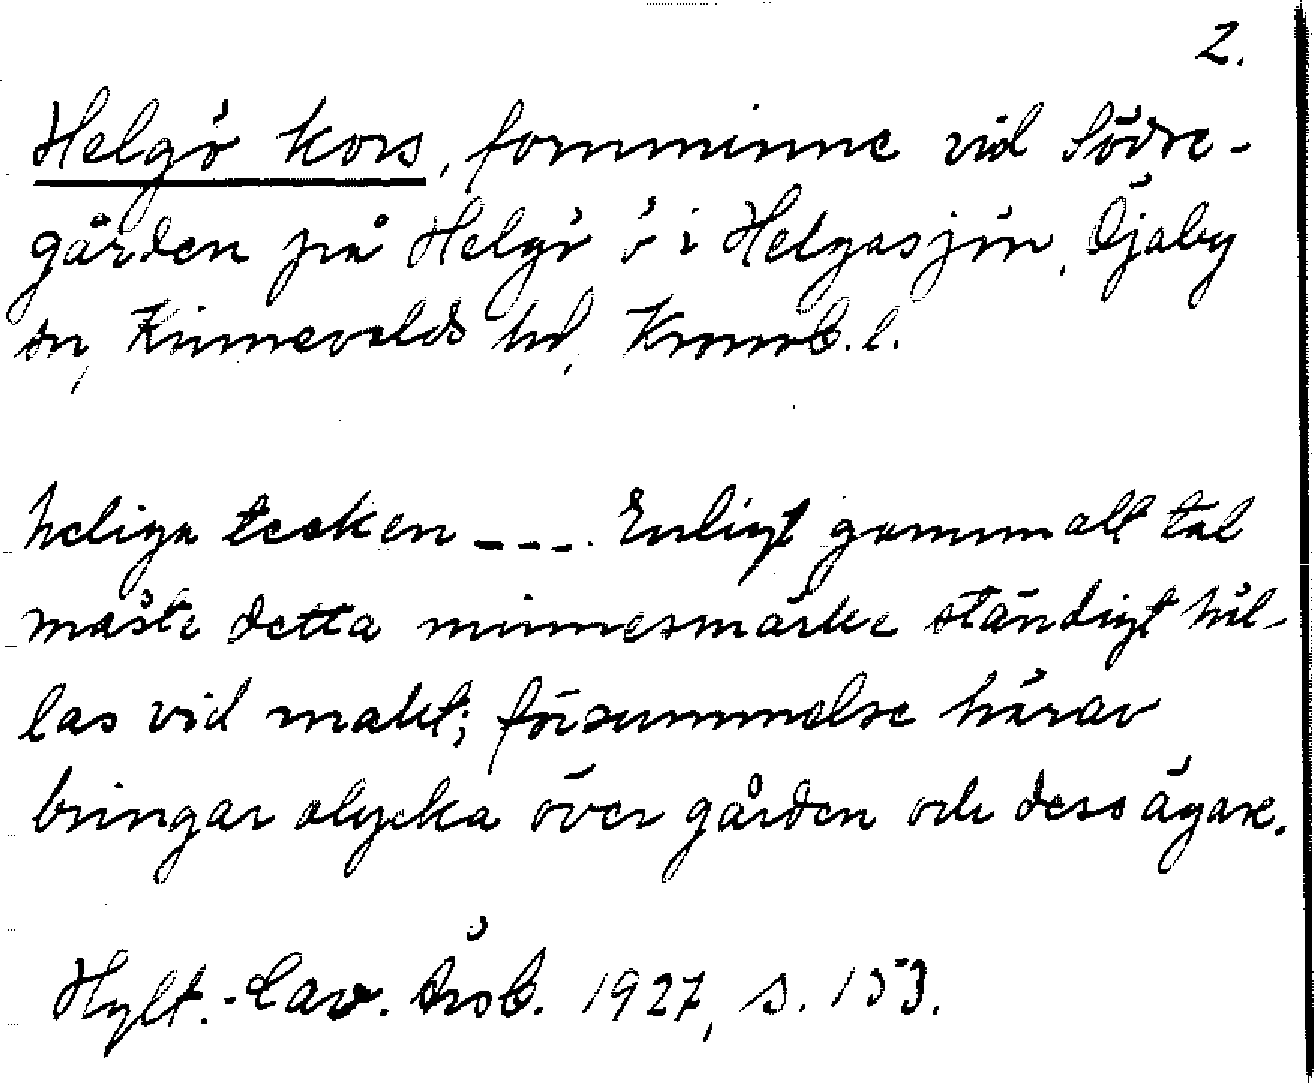 2.
Helgö kors, fornminne vid Södre-
gården på Helgö ö i Helgasjön, Öjaby
sn, Kinnevalds hd, Kronob. l.
heliga tecken ---. Enligt gammalt tal
måste detta minnesmärke ständigt hål-
las vid makt; försummelse härav
bringar olycka över gården och dess ägare.
Hylt.-Cav. Årsb. 1927, s. 153.